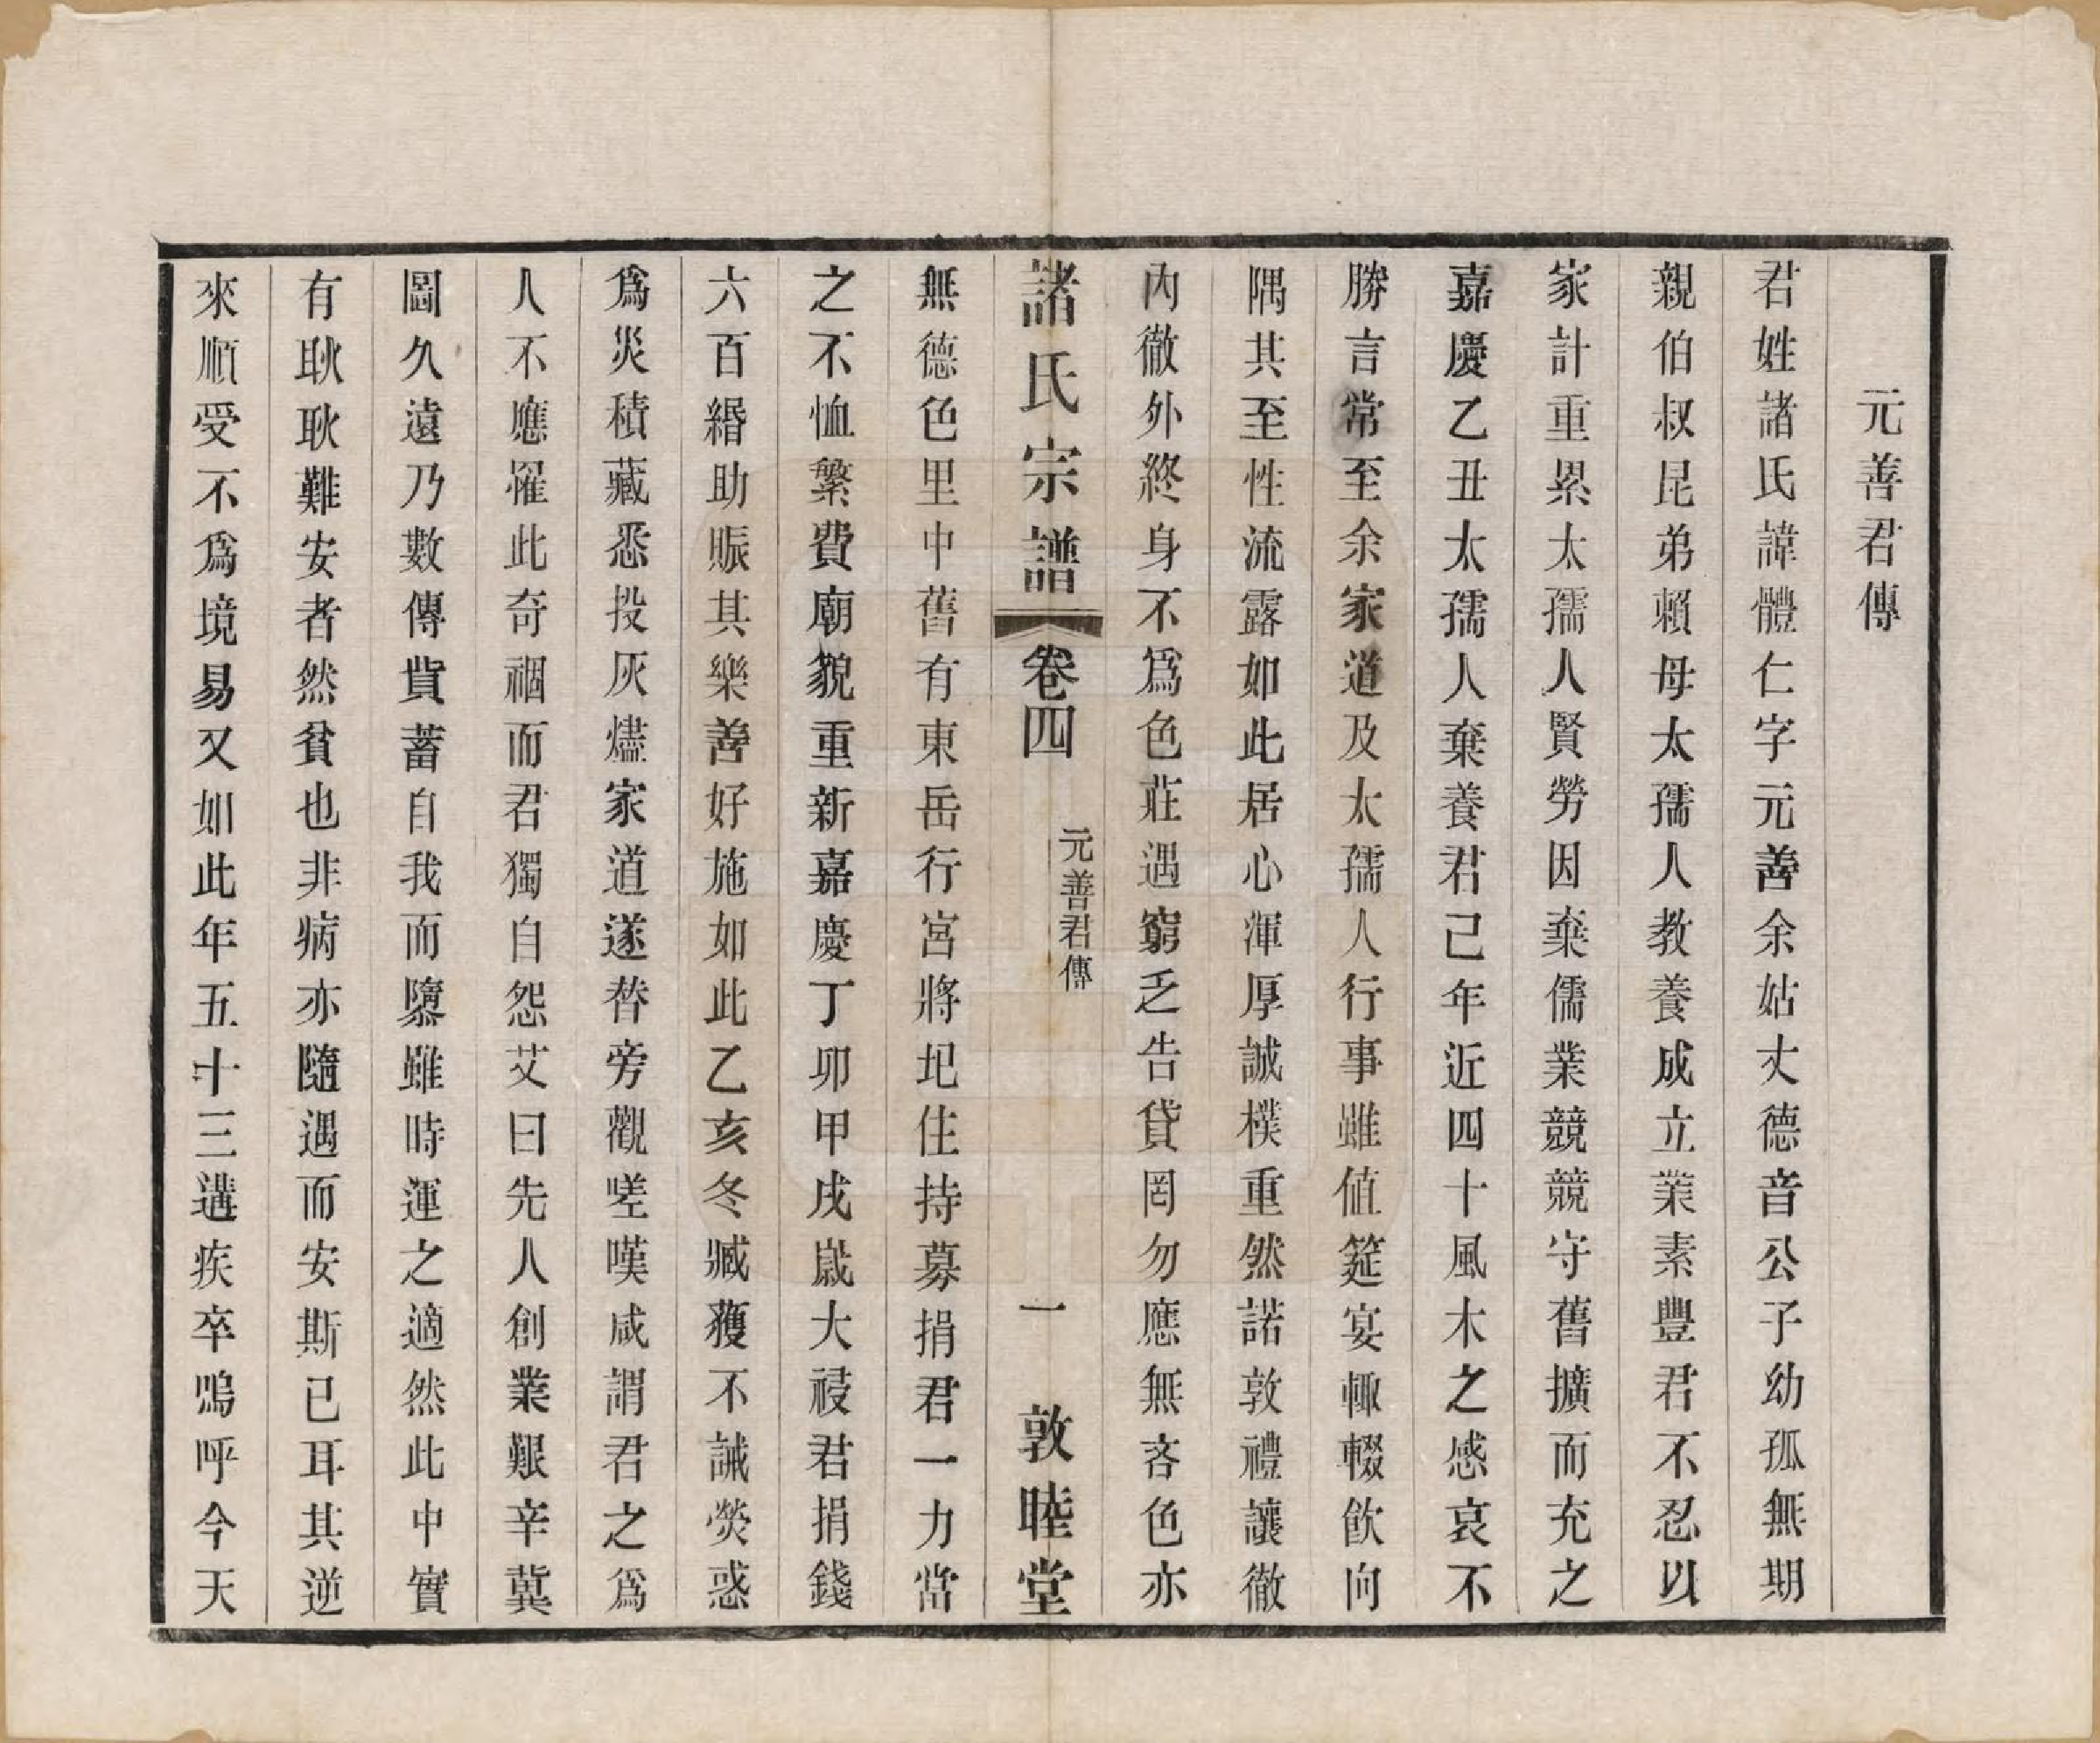 元善君傳
君姓諸氏諱體仁字元善余姑丈德音公子幼孤無期
親伯叔昆弟賴母太孺人教養成立業素豐君不忍以
家計重累太孺人賢勞因棄儒業競競守舊擴而充之
嘉慶乙丑太孺人棄養君己年近四十風木之感哀不
勝言常至余家道及太孺人行事雖值筵宴輙輟飲向
隅其至性流露如此居心渾厚誠樸重然諾敦禮讓徹
內徹外終身不爲色莊遇窮乏告貸罔勿應無吝色亦
諸氏宗譜 卷四 元善君傳 一 敦睦堂
無德色里中舊有東岳行宮將圯住持募捐君一力當
之不恤繁費廟貌重新嘉慶丁卯甲戌歲大祲君捐錢
六百緡助賑其樂善好施如此乙亥冬臧獲不誡熒惑
爲災積藏悉投灰燼家道遂替旁觀嗟嘆咸謂君之爲
人不應罹此奇禍而君獨自怨艾曰先人創業艱辛冀
圖久遠乃數傳貲蓄自我而隳雖時運之適然此中實
有耿耿難安者然貧也非病亦隨遇而安斯已耳其逆
來順受不爲境易又如此年五十三遘疾卒嗚呼今天